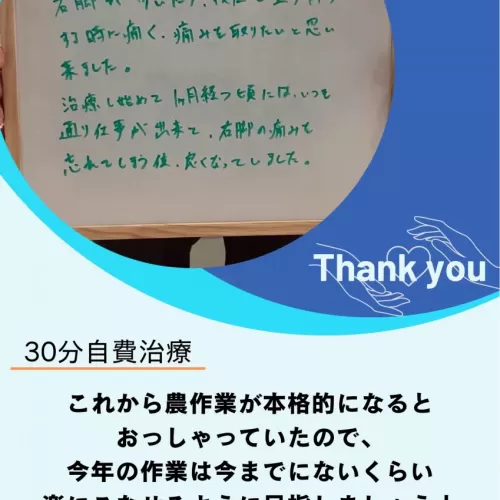 右脚が
する時に痛く、痛みを取りたいと思い
来ました。
治療し始めて1ヶ月経つ頃には、いつも
通り仕事が出来て、右脚の痛みも
忘れてしまう位、良くなってしまいました。
Thank you
30分自費治療
これから農作業が本格的になると
おっしゃっていたので、
今年の作業は今までにないくらい
楽にこなせるように目指しましょう！